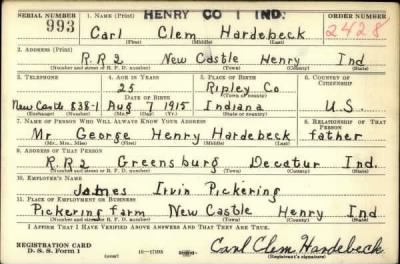 SERIAL NUMBER
993
1. NAME (Print)
HENRY CO 1 IND.
ORDER NUMBER
2428
Carl Clem Hardebeck
(First) (Middle) (Last)
2. ADDRESS (Print)
R.R 2 New Castle Henry Ind
(Number and street or R. F. D. number) (Town) (County) (State)
3. TELEPHONE
4. AGE IN YEARS
5. PLACE OF BIRTH
6. COUNTRY OF CITIZENSHIP
25
Ripley Co
(Town or county)
DATE OF BIRTH
New Castle 538-1 Aug 7 1915 Indiana U.S.
(Exchange) (Number) (Mo.) (Day) (Yr.) (State or country)
7. NAME OF PERSON WHO WILL ALWAYS KNOW YOUR ADDRESS
8. RELATIONSHIP OF THAT PERSON
Mr George Henry Hardebeck father
(Mr., Mrs., Miss) (First) (Middle) (Last)
9. ADDRESS OF THAT PERSON
R.R 2 Greensburg Decatur Ind.
(Number and street or R. F. D. number) (Town) (County) (State)
10. EMPLOYER'S NAME
James Irvin Pickering
11. PLACE OF EMPLOYMENT OR BUSINESS
Pickering farm New Castle Henry Ind
(Number and street or R. F. D. number) (Town) (County) (State)
I AFFIRM THAT I HAVE VERIFIED ABOVE ANSWERS AND THAT THEY ARE TRUE.
REGISTRATION CARD
D. S. S. Form 1
Carl Clem Hardebeck
(Registrant's signature)